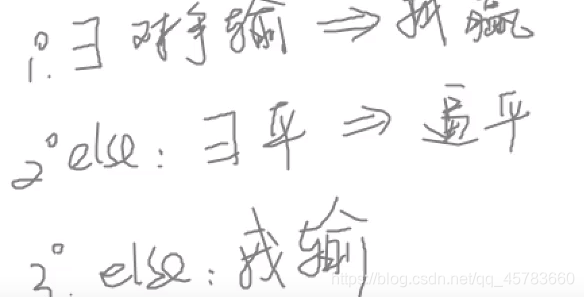 1°. ∃ 对手输 ⇒ 我赢
2° else: ∃ 平 ⇒ 逼平
3°. else: 我输
https://blog.csdn.net/qq_45783660